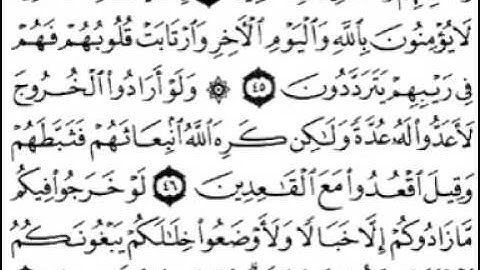 لَا يُؤْمِنُونَ بِٱللَّهِ وَٱلْيَوْمِ ٱلْآخِرِ وَٱرْتَابَتْ قُلُوبُهُمْ فَهُمْ
فِى رَيْبِهِمْ يَتَرَدَّدُونَ ٤٥ ۞ وَلَوْ أَرَادُوا۟ ٱلْخُرُوجَ
لَأَعَدُّوا۟ لَهُۥ عُدَّةً وَلَٰكِن كَرِهَ ٱللَّهُ ٱنۢبِعَاثَهُمْ فَثَبَّطَهُمْ
وَقِيلَ ٱقْعُدُوا۟ مَعَ ٱلْقَٰعِدِينَ ٤٦ لَوْ خَرَجُوا۟ فِيكُم
مَّا زَادُوكُمْ إِلَّا خَبَالًا وَلَأَوْضَعُوا۟ خِلَٰلَكُمْ يَبْغُونَكُمُ